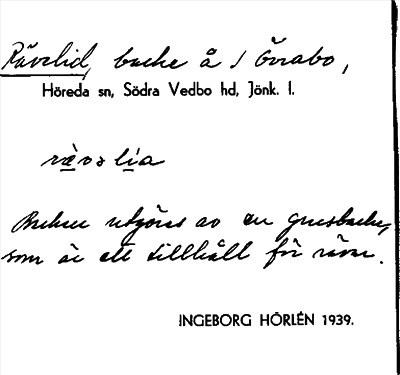 Rävelid, backe å / Övrabo,
Höreda sn, Södra Vedbo hd, Jönk. l.
rävs lia
Backen utgöres av en grusbacke,
som är ett tillhåll för rävar.
INGEBORG HÖRLÉN 1939.